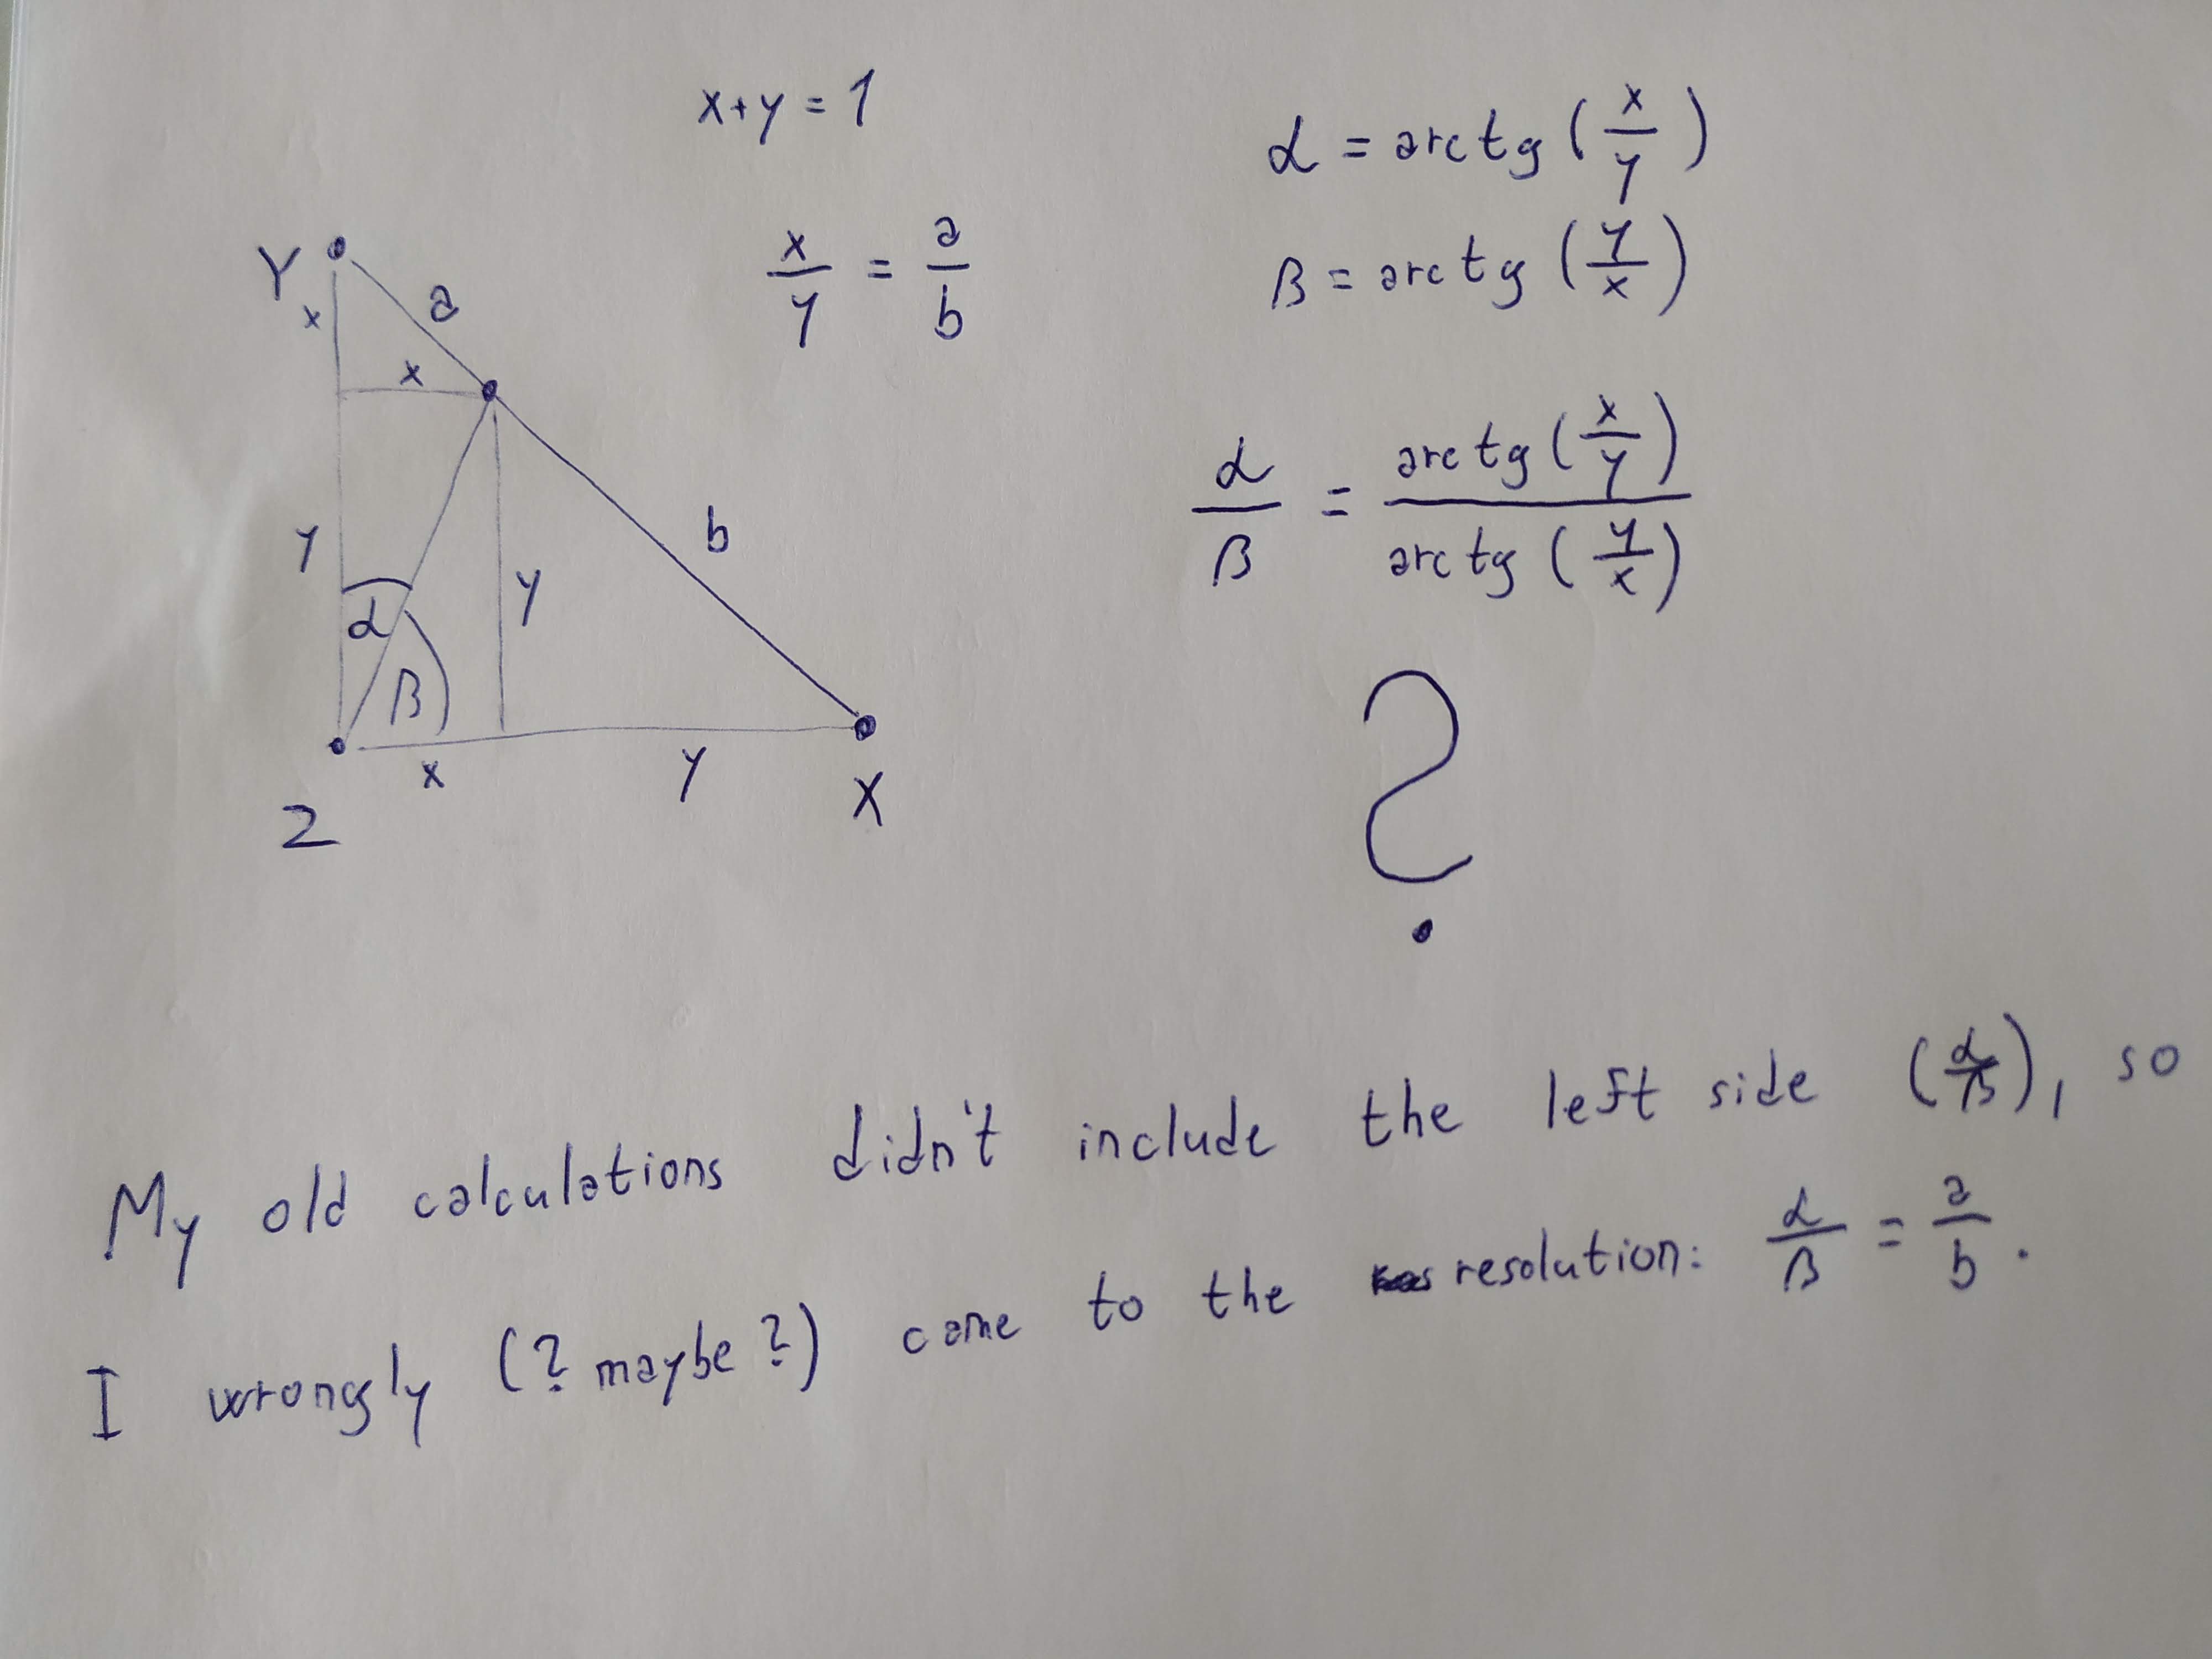 x+y=1
α = arctg (x/y)
x/y = a/b
β = arctg (y/x)
Y
x
a
x
α/β = arctg(x/y)/arctg(y/x)
y
b
y
α
β
x
y
Z
X
?
My old calculations didn't include the left side (α/β), so
I wrongly (? maybe ?) came to the resolution: α/β = a/b.